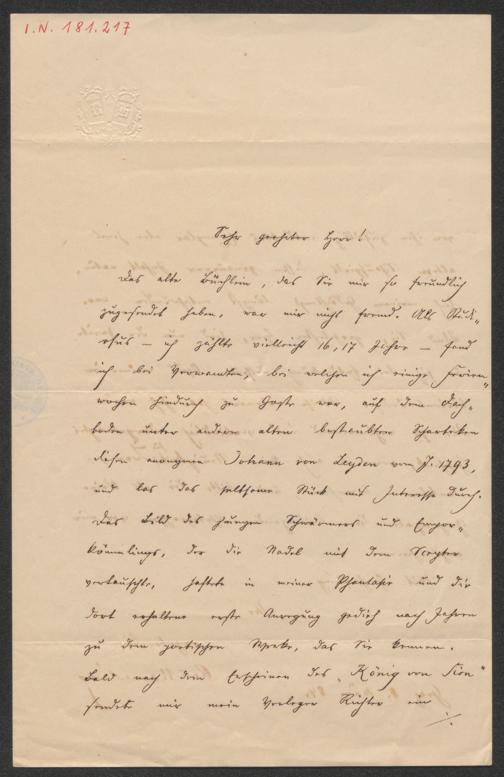 I.N. 181.217
Sehr geehrter Herr!
Das alte Büchlein, das Sie mir so freundlich
zugesendet haben, war mir nicht fremd. Als Stud-
iosus — ich zählte vielleicht 16, 17 Jahre — fand
ich bei Verwandten, bei welchen ich einige Ferien-
wochen hindurch zu Gaste war, auf dem Dach-
boden unter andern alten bestaubten Scharteken
diesen anonymen Johann von Leyden vom J. 1793,
und las das seltsame Stück mit Interesse durch.
Das Bild des jungen Schwärmers und Empor-
kömmlings, der die Nadel mit dem Scepter
vertauschte, haftete in meiner Phantasie und die
dort erhaltene erste Anregung gedieh nach Jahren
zu dem poetischen Werke, das Sie kennen.
Bald nach dem Erscheinen des „König von Sion“
sendete mir mein Verleger Richter ein
./.